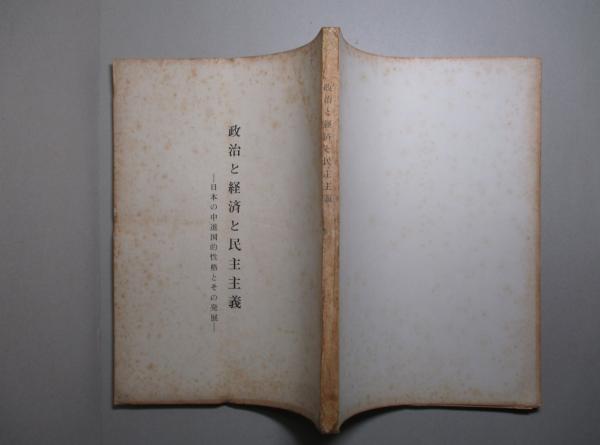 政治と経済と民主主義
―日本の中進国的性格とその発展―
政治と経済と民主主義